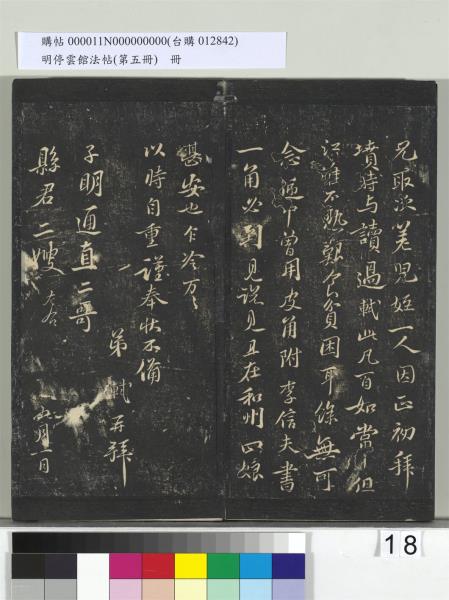 購帖 000011N000000000(台購 012842)
明停雲館法帖(第五冊) 冊
兄取次差兒姪一人因正初拜
墳時与讀過軾此凡百如常但
江淮不熟艱食貧困耳餘無可
念遞中曾用皮角附李信夫書
一角必到見說見且在和州四娘
甚安也乍冷万万
以時自重謹奉狀不備
弟軾再拜
子明通直二哥
縣君二嫂
月一日
18